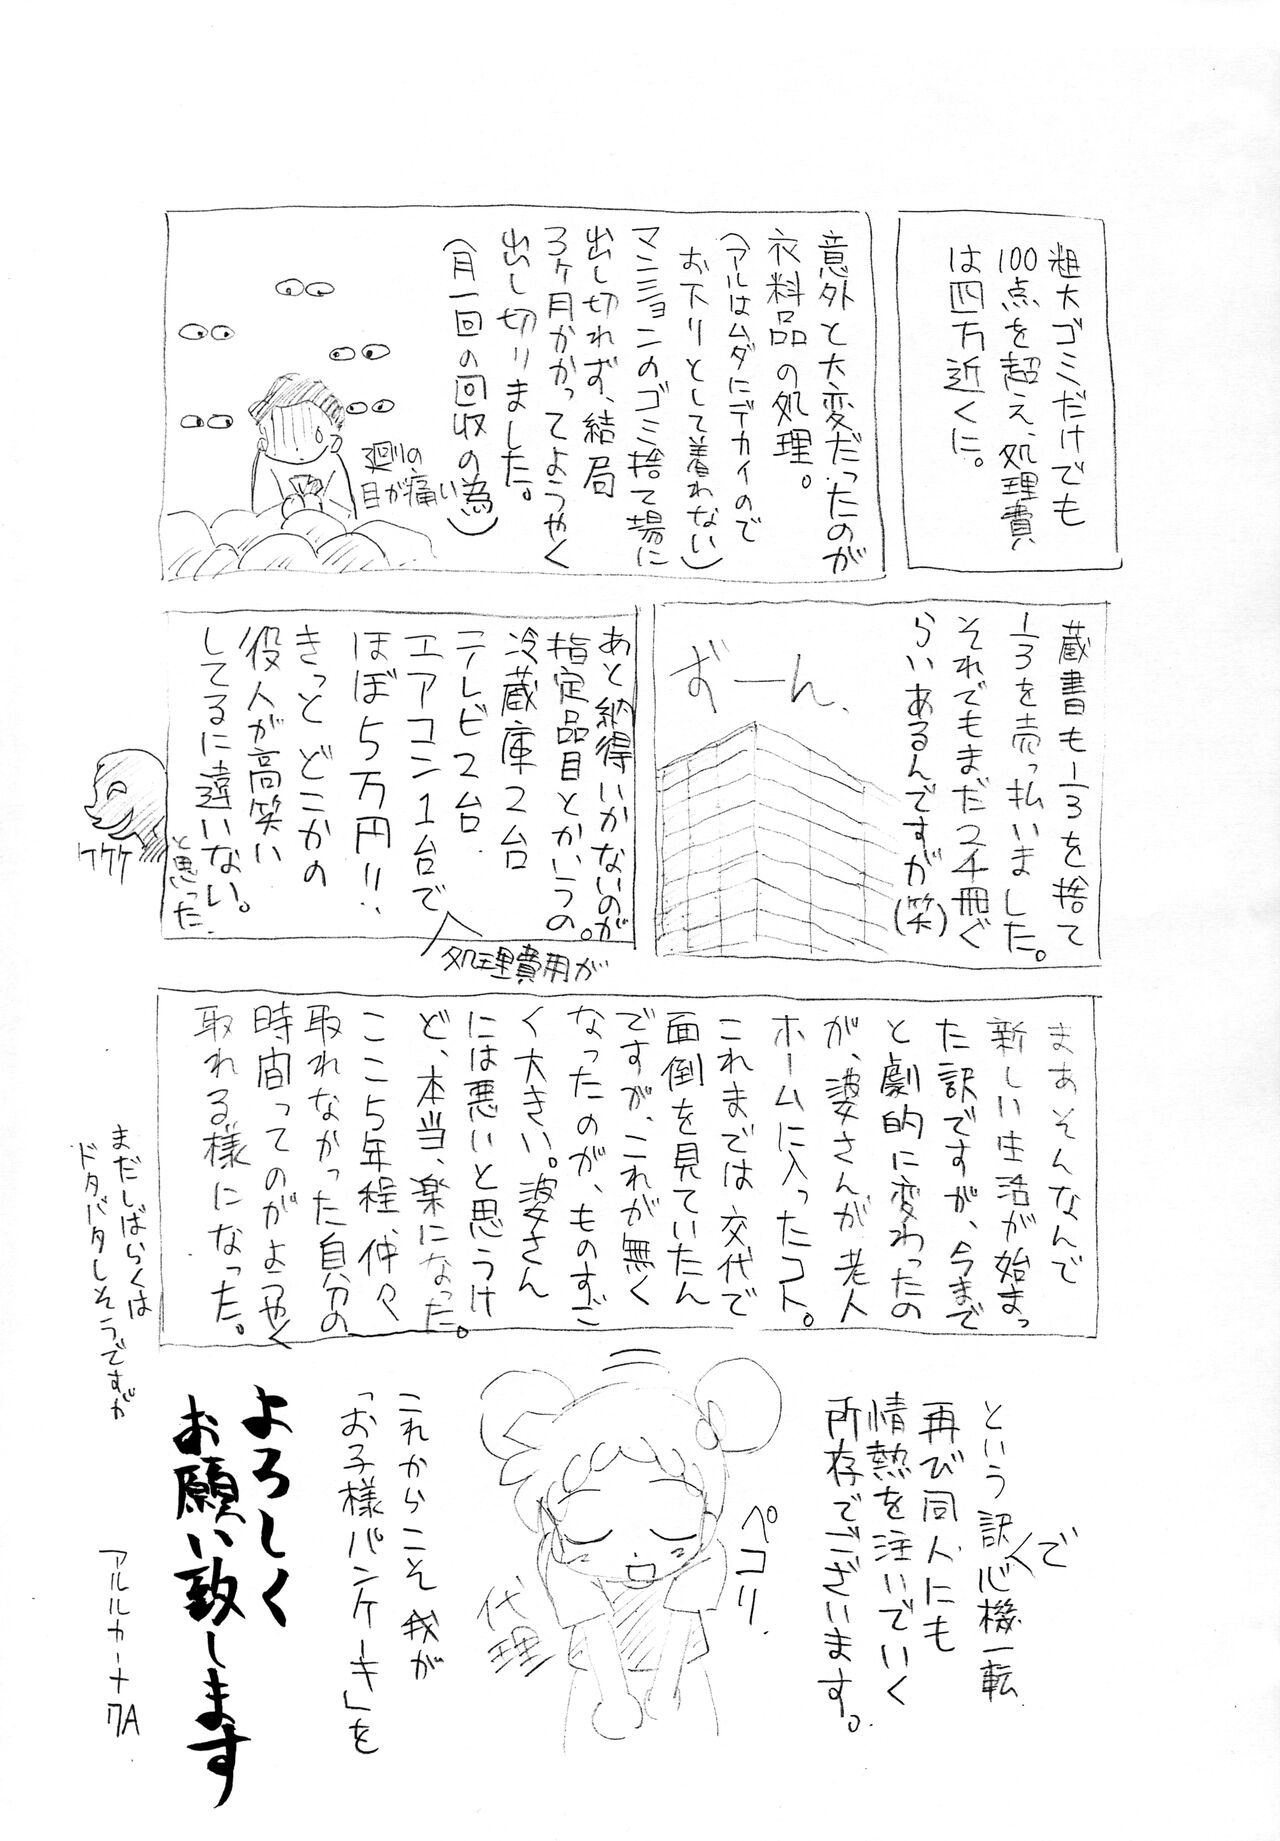 粗大ゴミだけでも
100点を超え、処理費
は四万近くに。
意外と大変だったのが
衣料品の処理。
(アルはムダにデカイので
お下りとして着れない)
マンションのゴミ捨て場に
出し切れず、結局
3ヶ月かかってようやく
出し切りました。
(月一回の回収の為)
廻りの
目が痛い
蔵書も1/3を捨て
1/3を売っ払いました。
それでもまだ2千冊ぐ
らいあるんですが(笑)
ずーん、
あと納得いかないのが
指定品目とかいうの。
冷蔵庫2台
テレビ2台
エアコン1台で
処理費用が
ほぼ5万円!!
きっとどこかの
役人が高笑い
してるに違いない。
と思った。
ケケケ
まあそんなんで
新しい生活が始まっ
た訳ですが、今まで
と劇的に変わったの
が、婆さんが老人
ホームに入ったコト。
これまでは交代で
面倒を見ていたん
ですが、これが無く
なったのが、ものすご
く大きい。婆さん
には悪いと思うけ
ど、本当、楽になった。
ここ5年程、仲々
取れなかった自分の
時間ってのがようやく
取れる様になった。
まだしばらくは
ドタバタしそうですが
という訳で
心機一転
再び同人にも
情熱を注いでいく
所存でございます。
ペコリ.
代理
これからこそ我が
「お子様パンケーキ」を
よろしく
お願い致します
アルルカーナ7A